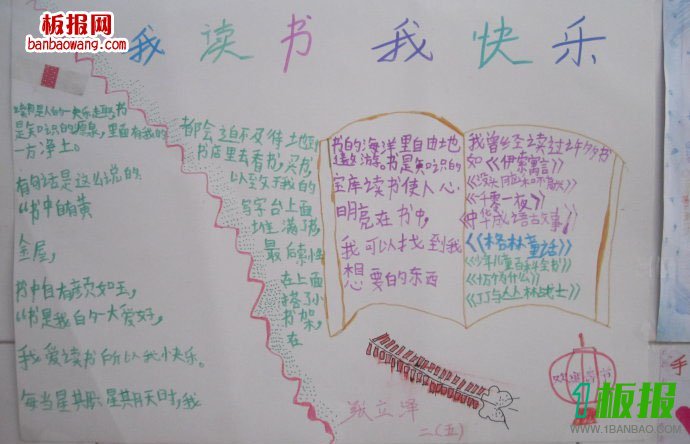 板报网
banbaowang.com
我读书 我快乐
是知识的源泉,里面有我的
一方净土。
有句话是这么说的
“书中自有黄
金屋,
书中自有颜如玉,
“书是我的一大爱好,
我爱读书所以我快乐。
每当星期 星期天时,我
都会迫不及待地到
书店里去看书,买书
以至于我的
写字台上面
堆满了书,
最后索性
在上面
搭了小
书架,
在
书的海洋里自由地
遨游。书是知识的
宝库读书使人心
明亮在书中,
我可以找到我
想要的东西
我曾经读过许多书
如《伊索寓言》
《没头脑和不高兴》
《一千零一夜》
《中华成语故事》
《格林童话》
《少年儿童百科全书》
《十万个为什么》
二(五)
1板报
WWW.1BANBAO.COM
手